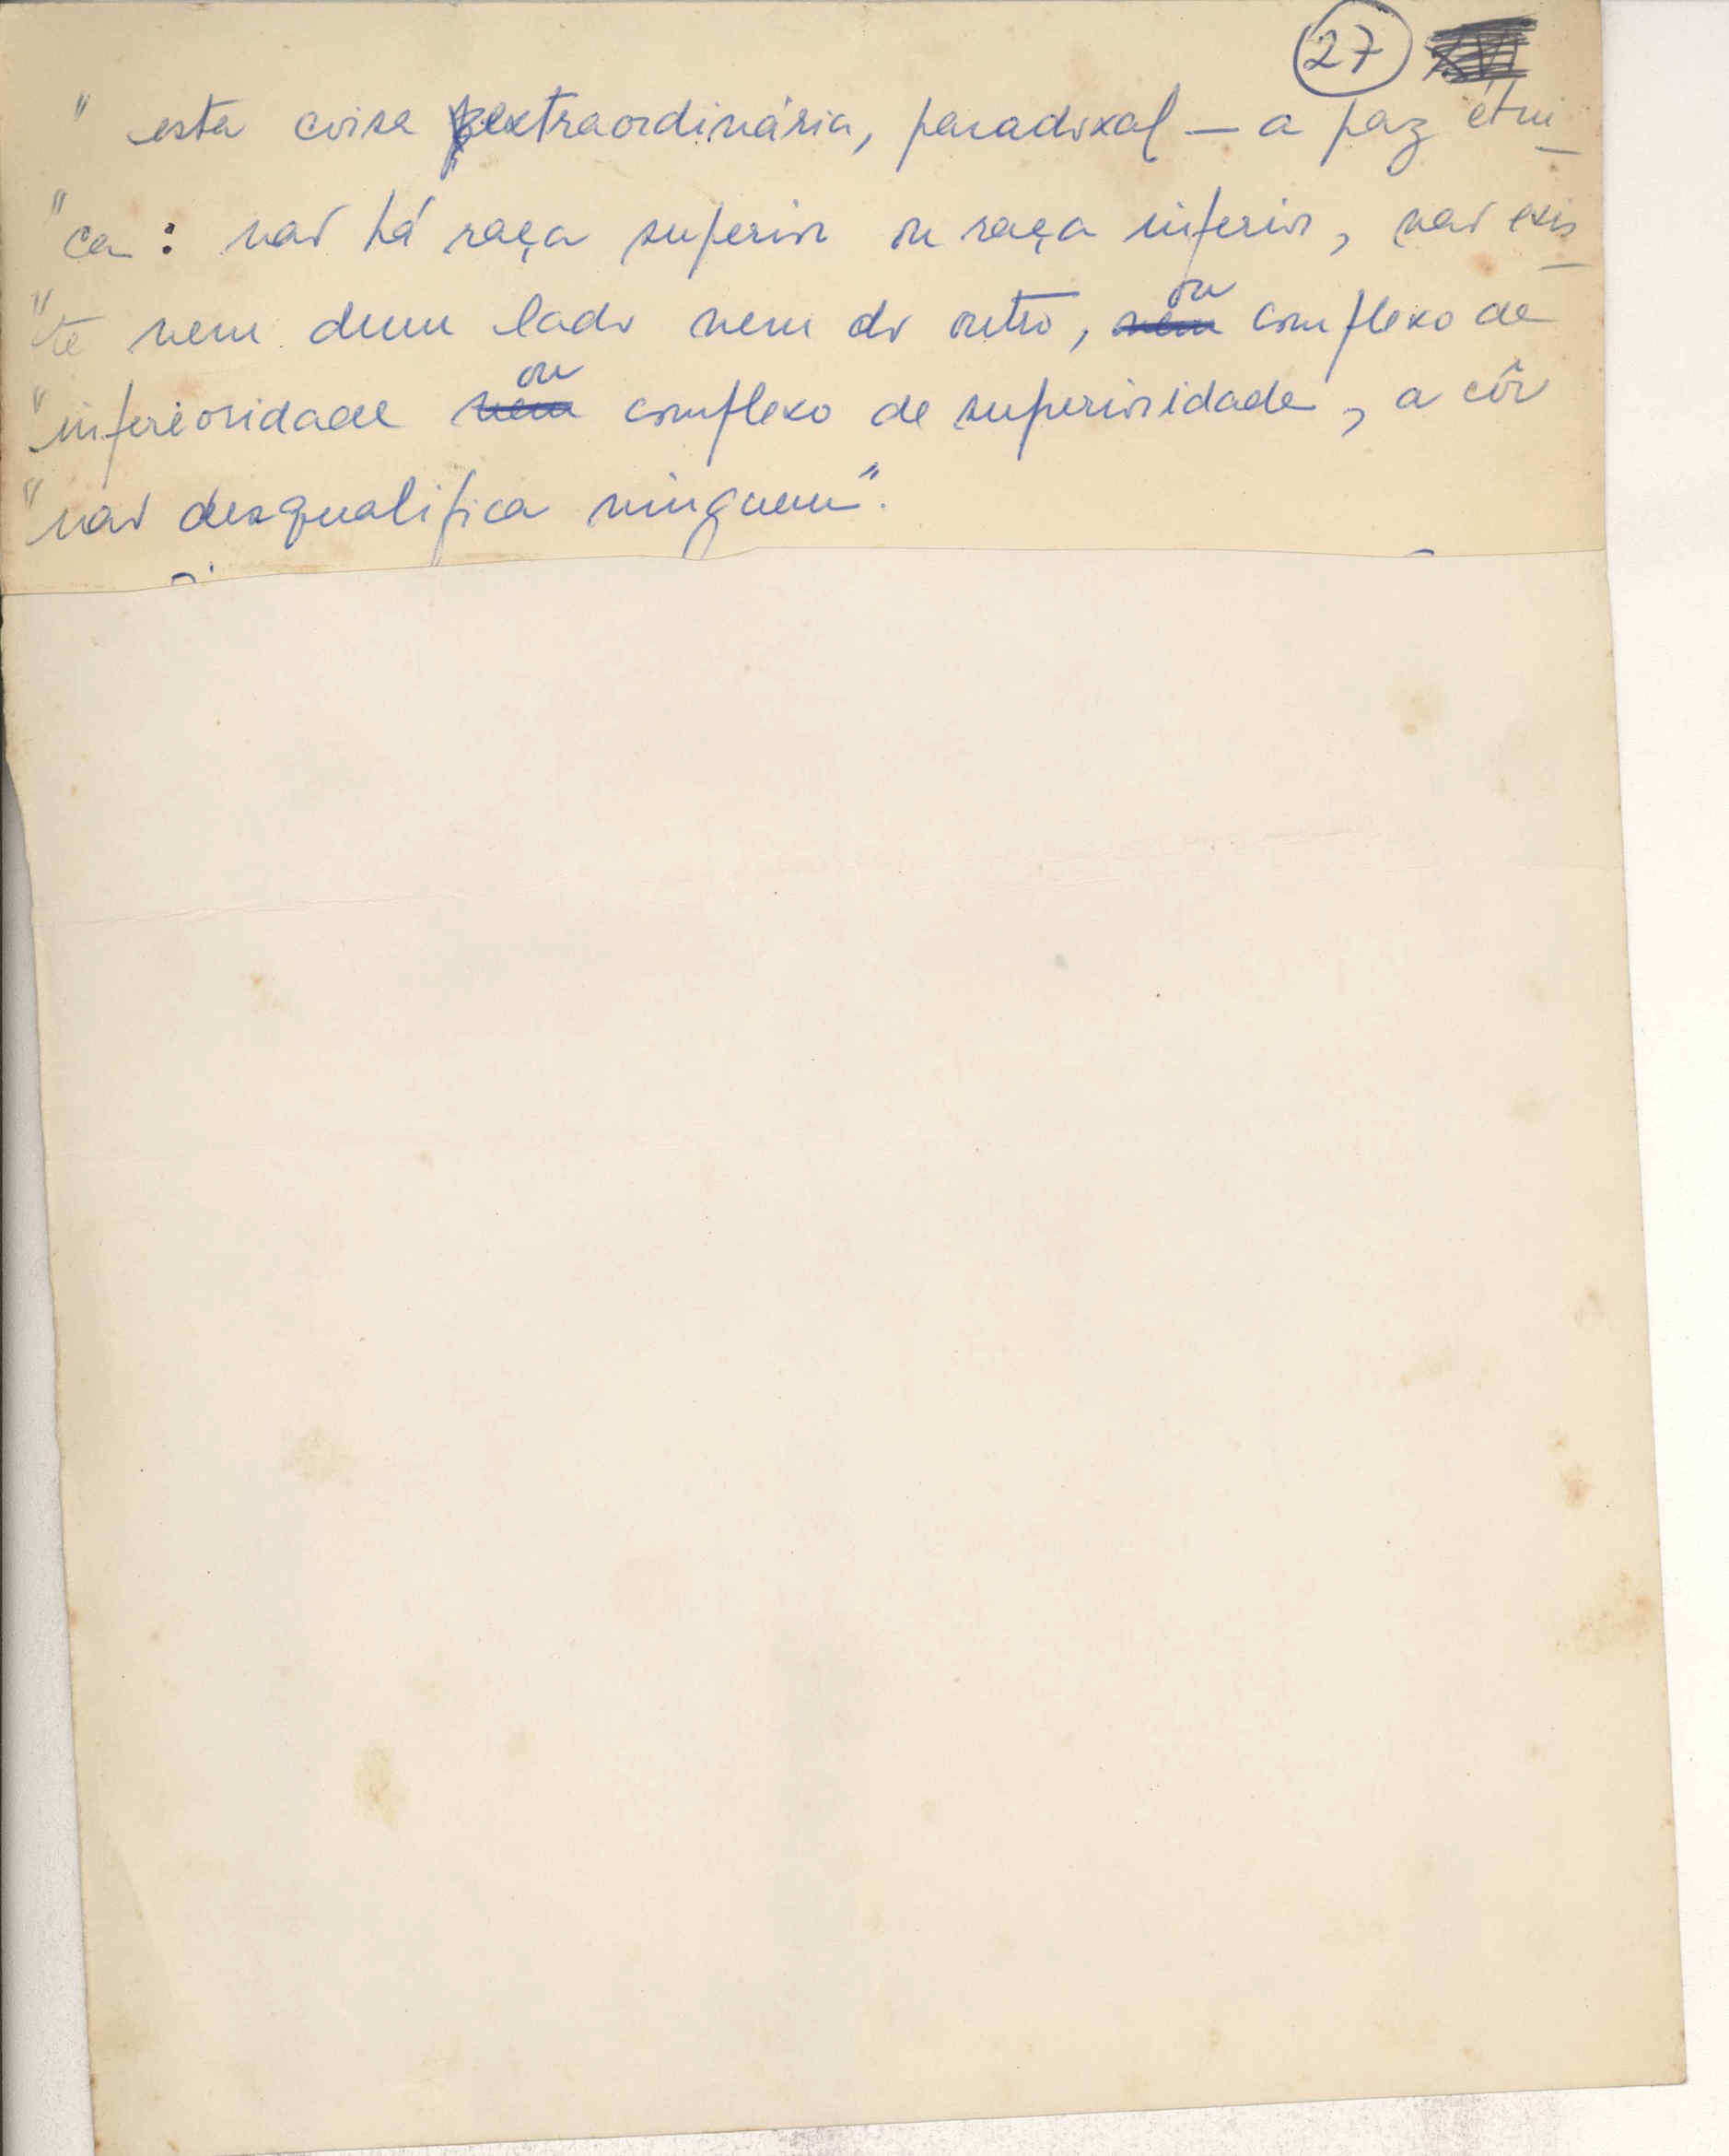 27
" esta coisa extraordinária, paradoxal — a paz étni
" ca : não há raça superior ou raça inferior, não exis
" te nem dum lado nem do outro, ou complexo de
" inferioridade ou complexo de superioridade, a côr
" não desqualifica ninguem".